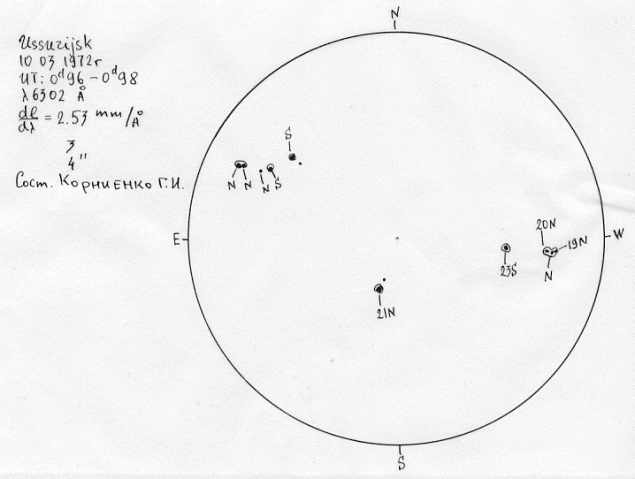 Ussurijsk
10 03 1972г
UT: 0ᵈ96 - 0ᵈ98
λ 6302 Å
dl/dλ = 2.53 mm/Å
3
4"
Сост. Корниенко Г.И.
N
S
N N N S
E
W
20N
19N
23S
N
21N
S